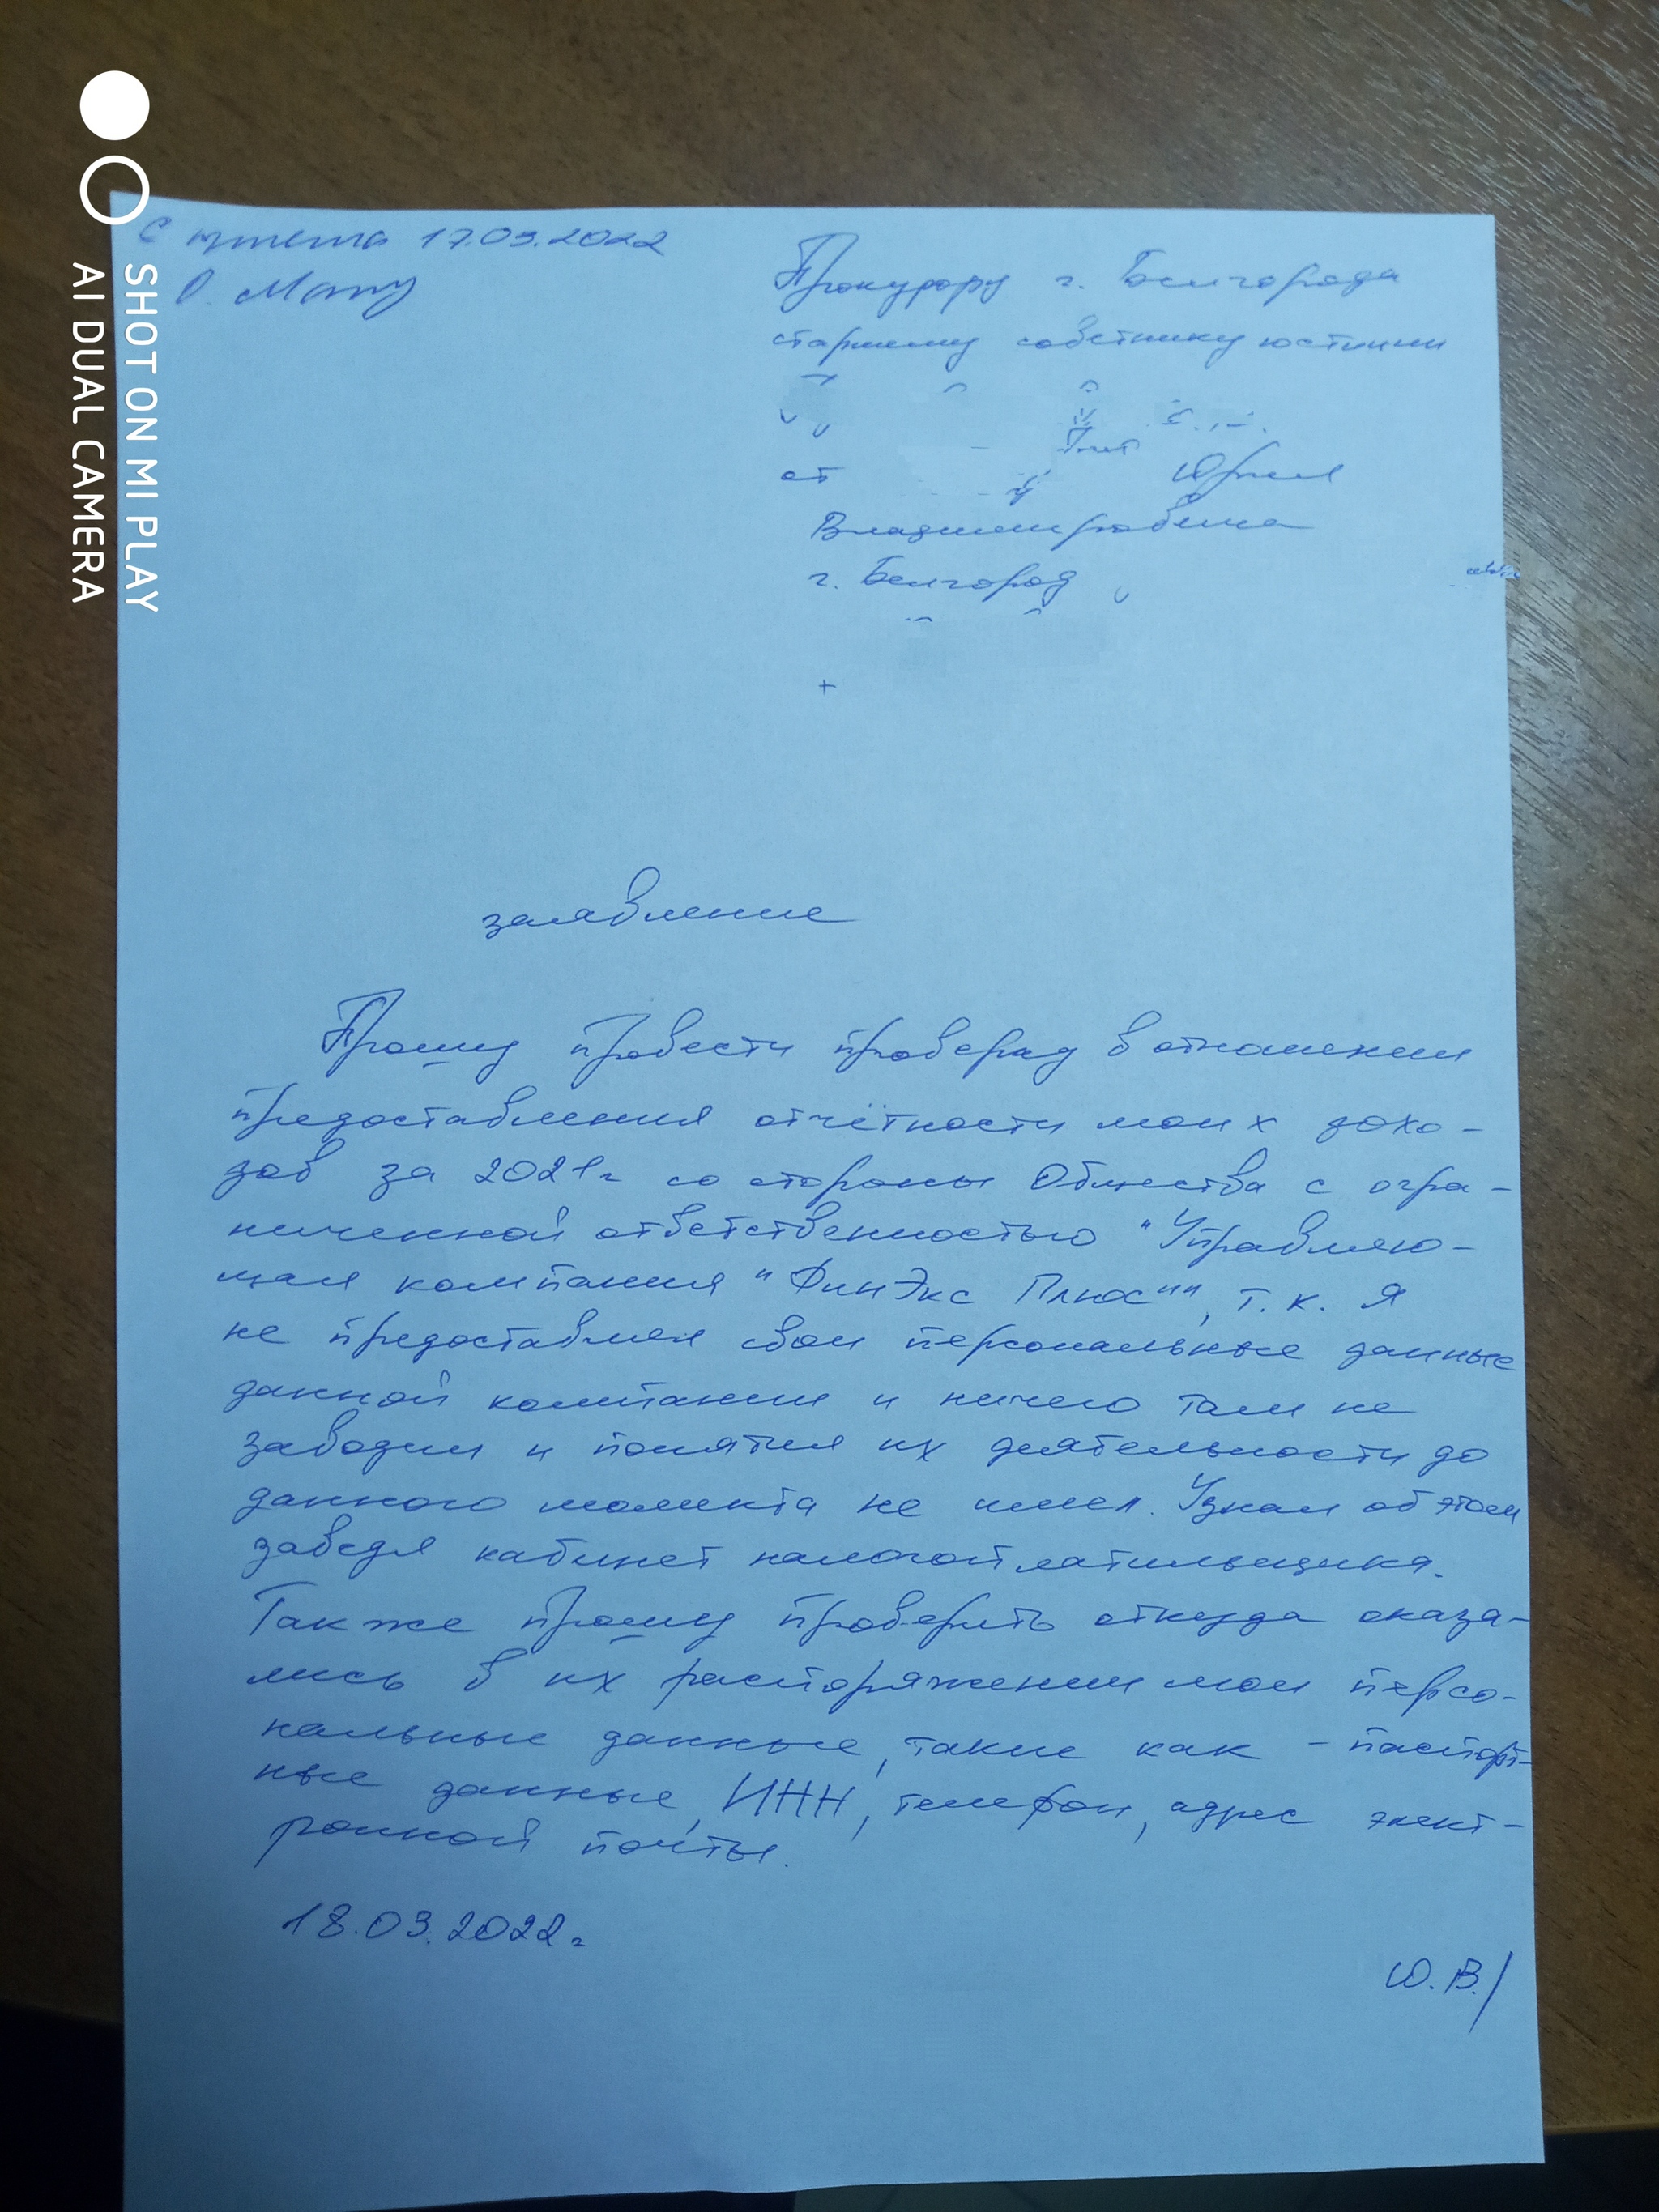 SHOT ON MI PLAY
AI DUAL CAMERA
С 17.03.2022
Прокурору г. Белгорода
старшему советнику юстиции
от Юрия
Владимировича
г. Белгород
заявление
Прошу провести проверку в отношении
предоставления отчётности моих дохо-
дов за 2021г со стороны Общества с огра-
ниченной ответственностью "Управляю-
щая компания "ФинЭкс Плюс"", т.к. я
не предоставлял свои персональные данные
данной компании и ничего там не
заводил и понятия их деятельности до
данного момента не имел. Узнал об этом
заведя кабинет налогоплательщика.
Так же прошу проверить откуда оказа-
лись в их распоряжении мои персо-
нальные данные, такие как - паспорт-
ные данные, ИНН, телефон, адрес элект-
ронной почты.
18.03.2022г
Ю.В./